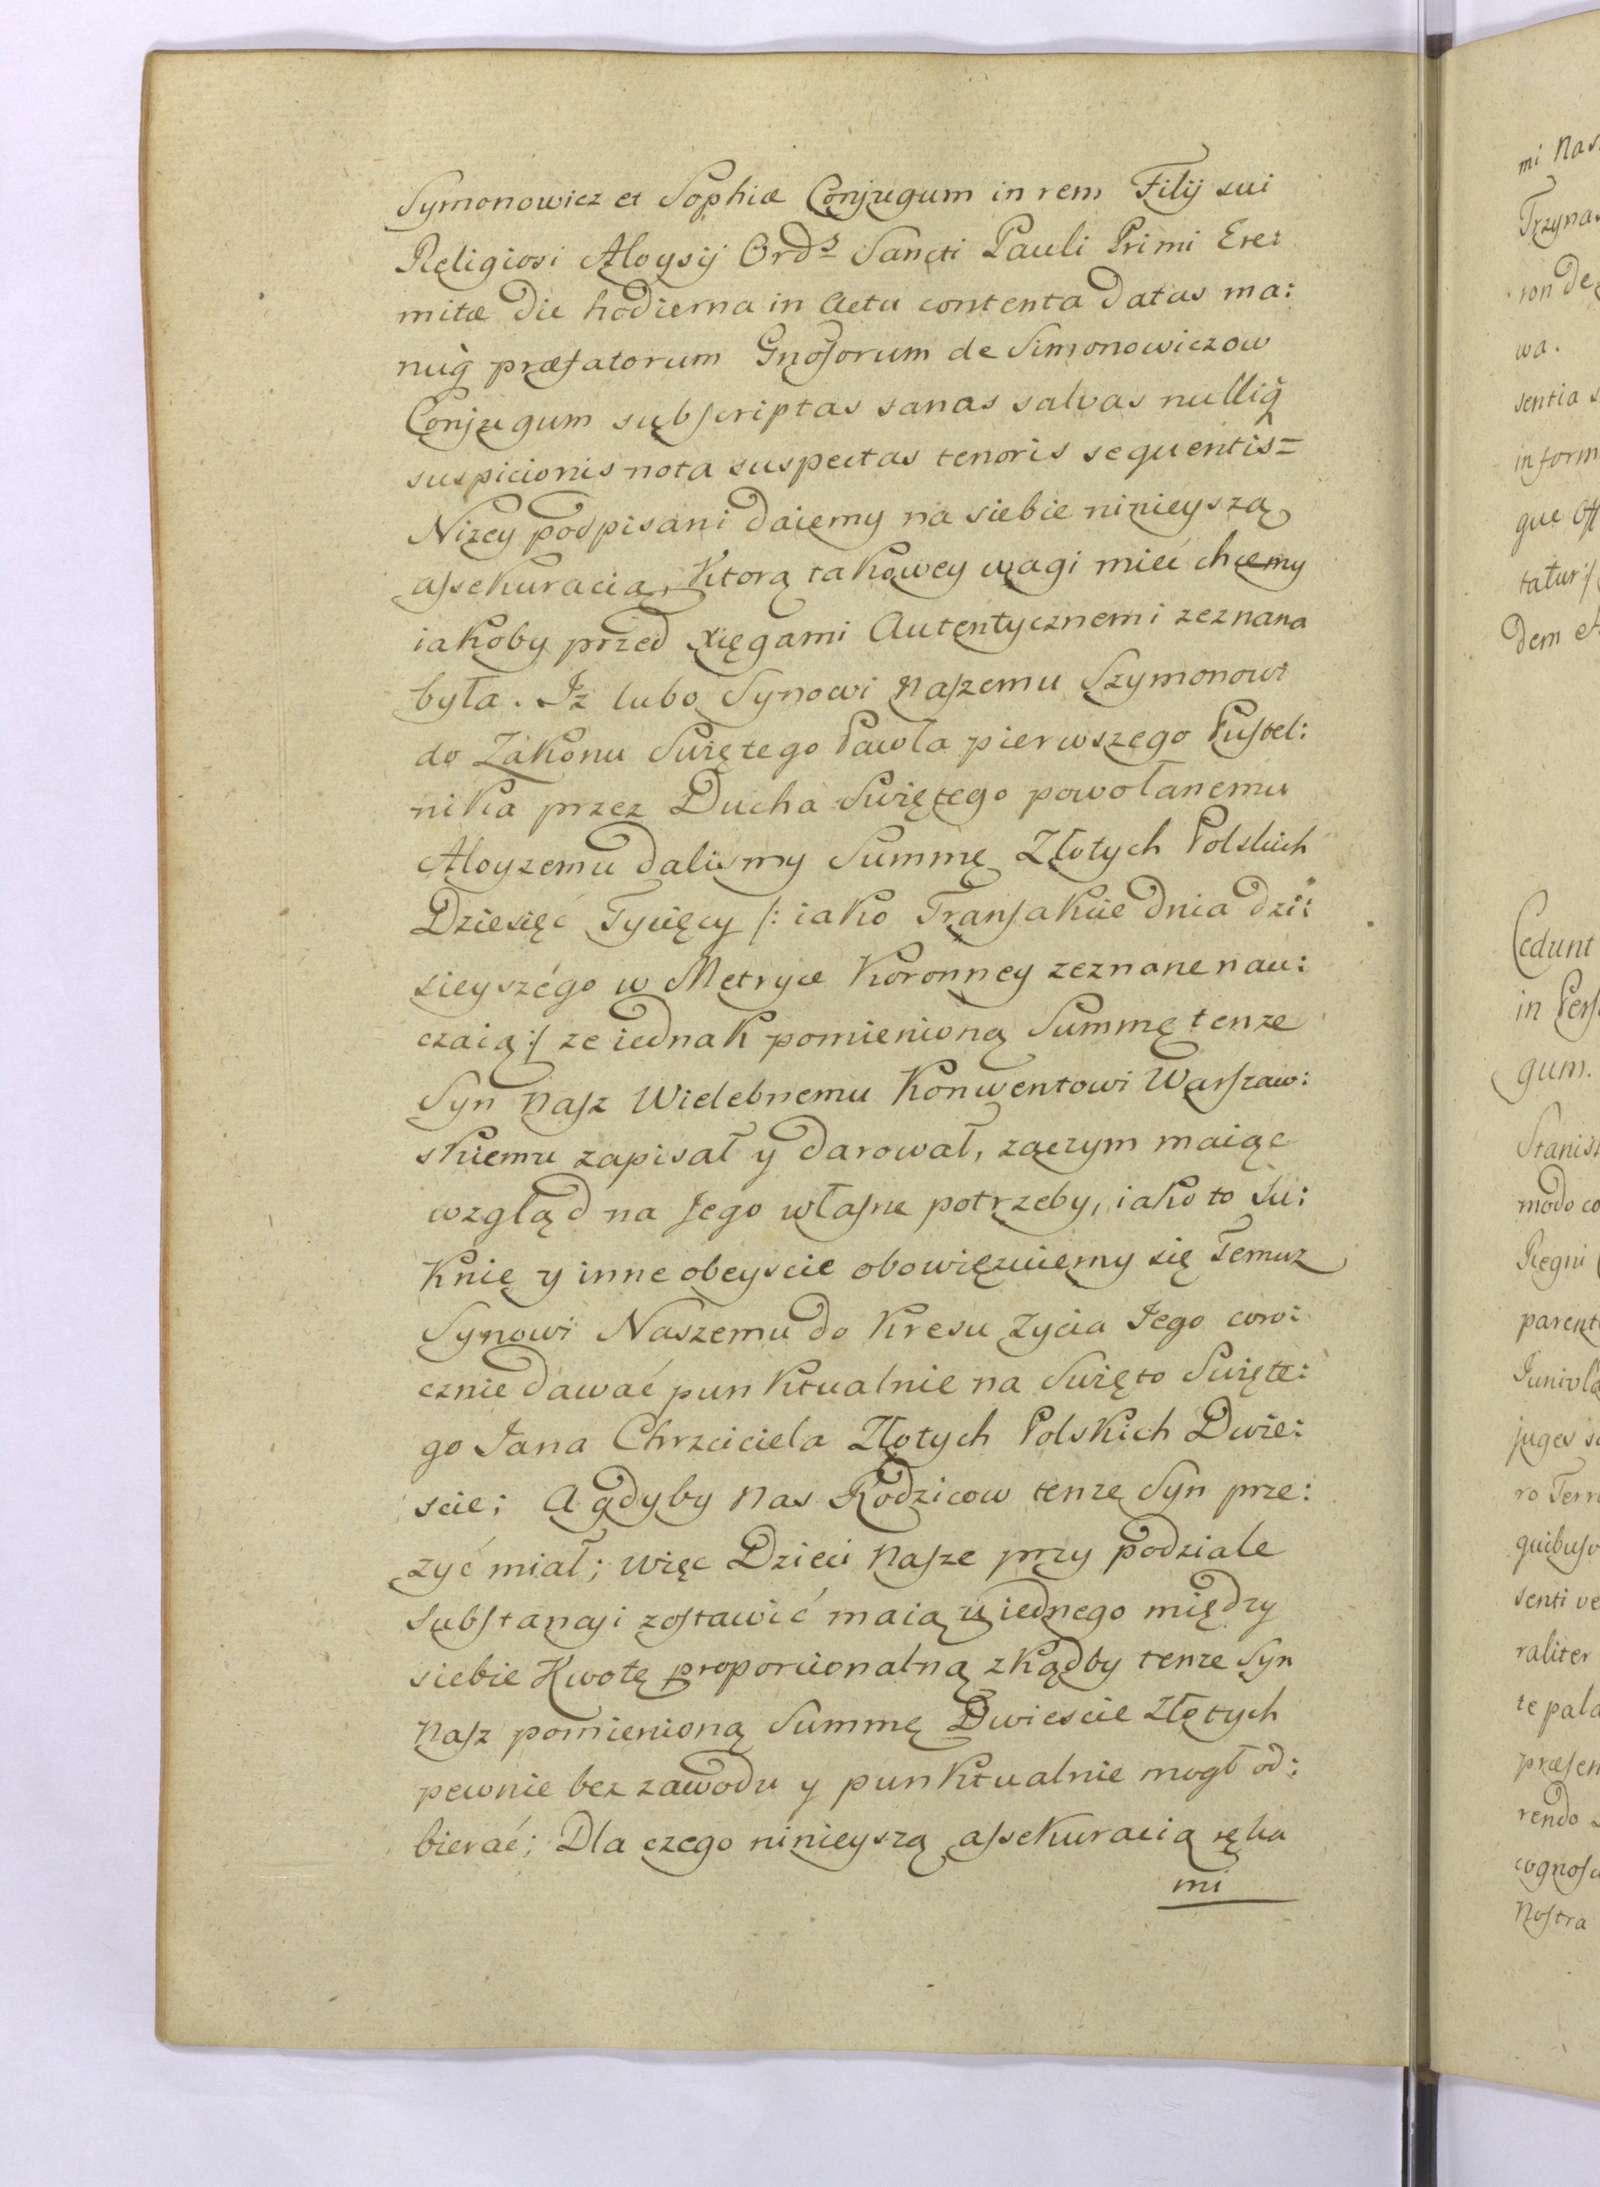 Symonowicz et Sophiæ Conjugum in rem Filij sui
Religiosi Aloysij Ord̲s̲ Sancti Pauli Primi Ere:
mitæ die hodierna in Actu contenta datas ma:
nuq̃ præfatorum Gnosorum de Simonowiczow
Conjugum subscriptas sanas salvas nulliq̃
suspicionis nota suspectas tenoris sequentis=
Nizey podpisani daiemy na siebie ninieyszą
assekuracią, ktorą takowey wagi mieć chcemy
iakoby przed xięgami Autentycznemi zeznana
była. Iż lubo Synowi naszemu Szymonowi
do Zakonu Swiętego Pawła pierwszego Pustel:
nika przez Ducha Swiętego powołanemu
Aloyzemu dalismy Summę Złotych Polskich
Dziesięć Tysięcy /: iako Transakcie dnia dzi:
sieyszégo w Metryce Koronney zeznane nau:
czaią :/ ze iednak pomienioną Summę tenze
Syn nasz Wielebnemu Konwentowi Warszaw:
skiemu zapisał y darował, zaczym maiąc
wzgląd na Jego własne potrzeby, iako to Su:
knię y inne obeyscie obowięzuiemy się temuz
Synowi Naszemu do kresu zycia Jego coro:
cznie dawać punktualnie na Swięto Swięte:
go Jana Chrzciciela Złotych Polskich Dwie:
scie; A gdyby nas Rodzicow tenze Syn prze:
zyć miał; więc Dzieci nasze przy podziale
substancyi zostawić maią u iednego między
siebie Kwotę proporcionalną zkądby tenze Syn
nasz pomienioną Summę Dwiescie Złotych
pewnie bez zawodu y punktualnie mogł od:
bierać; Dla czego ninieyszą assekuracią ręka
mi
mi nas
Trzyna
wa.
sentia
in form
que Off
dem
Cedunt
in Pers
gum.
Stanis
modo co
Regni
parent
juges
ro Terr
quibus
senti ve
raliter
te pala
præsen
rendo
cognos
Nostra